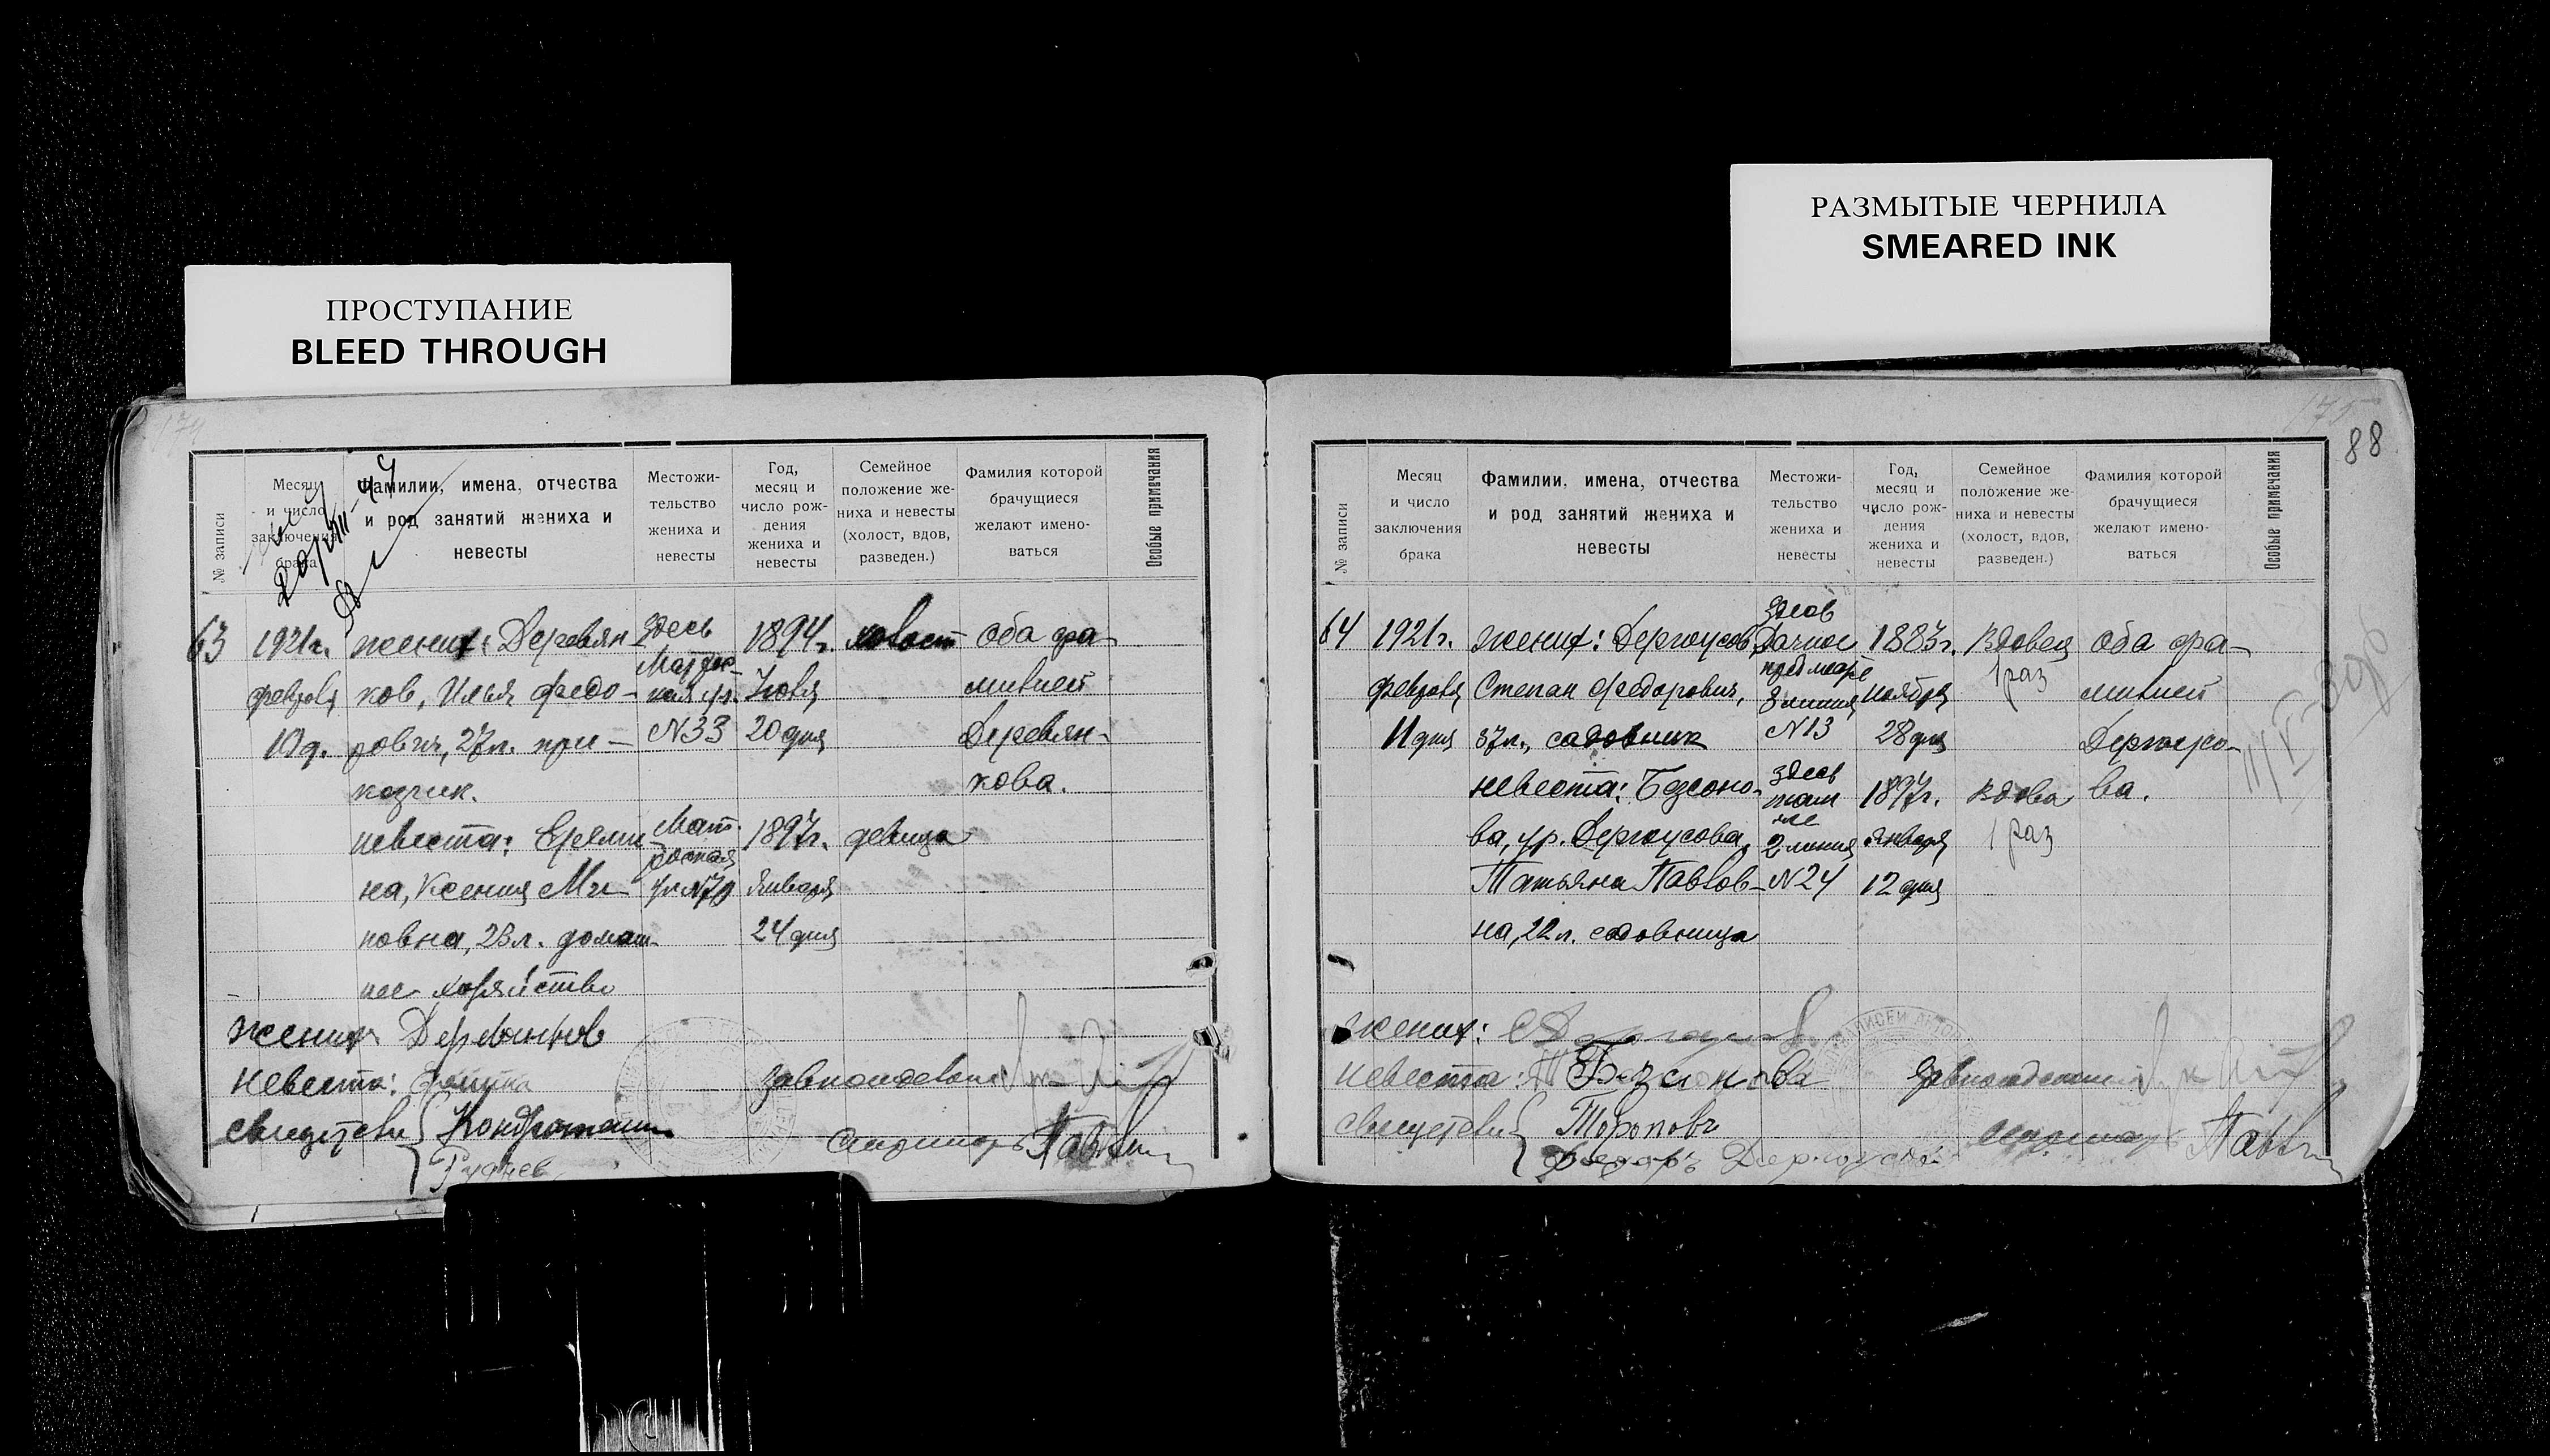 ПРОСТУПАНИЕ
BLEED THROUGH
РАЗМЫТЫЕ ЧЕРНИЛА
SMEARED INK
№ записи
Месяц и число заключения брака
Фамилии, имена, отчества и род занятий жениха и невесты
Местожительство жениха и невесты
Год, месяц и число рождения жениха и невесты
Семейное положение жениха и невесты (холост, вдов, разведен.)
Фамилия которой брачущиеся желают именоваться
Особые примечания
63
1921г.
февраля
10д.
жених: Деревян-
ков, Илья Федо-
рович, 27л. при-
казчик.
невеста:
на, Ксения
новна, 23л. домаш-
нее хозяйство
здесь
кая ул.
N33
ул N70
1894г.
Июля
20 дня
1897г.
января
24 дня
холост
девица
Оба фа-
милией
Деревян-
кова.
жених
невеста:
свидетели
Кондратенко
Руднев
174
175
88
№ записи
Месяц и число заключения брака
Фамилии, имена, отчества и род занятий жениха и невесты
Местожительство жениха и невесты
Год, месяц и число рождения жениха и невесты
Семейное положение жениха и невесты (холост, вдов, разведен.)
Фамилия которой брачущиеся желают именоваться
Особые примечания
64
1921г.
февраля
11 дня
жених: Дергоусов,
Степан Федорович,
37л., садовник
невеста: Безсоно-
ва, ур. Дергоусова,
Татьяна Павлов-
на, 22л. садовница
здесь
Дачное
8 линия
N13
здесь
там
же
2 линия
N24
1883г.
ноября
28 дня
1897г.
января
12 дня
Вдовец
1 раз
Вдова
1 раз
Оба фа-
милией
Дергоусо-
ва.
жених:
невеста: Т Безсонова
свидетели
Торопов